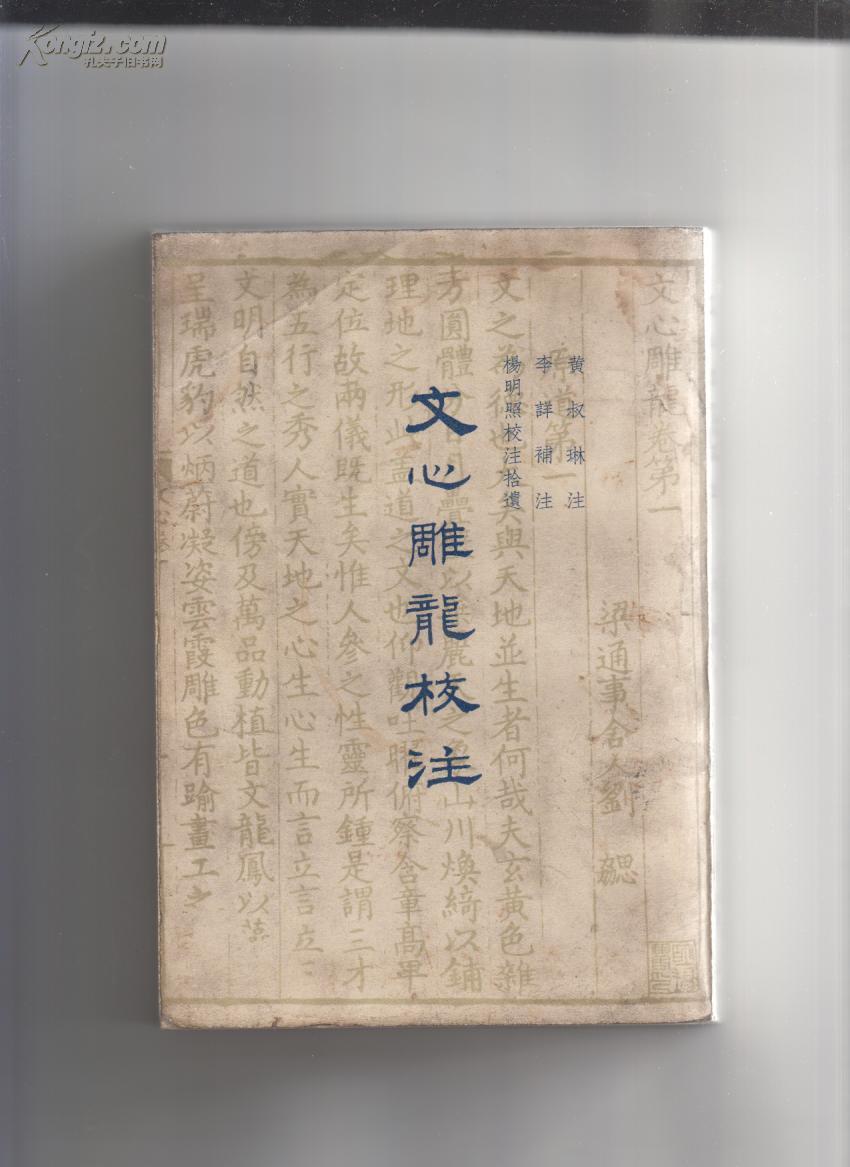 Kongfz.com
孔夫子旧书网
黄叔琳注
李詳補注
楊明照校注拾遺
文心雕龍校注
文心雕龍卷第一
梁通事舍人劉 勰
原道第一
文之為德也大矣與天地並生者何哉夫玄黃色雜
方圓體分日月疊璧以垂麗天之象山川煥綺以鋪
理地之形此盖道之文也仰觀吐曜俯察含章高卑
定位故兩儀既生矣惟人參之性靈所鍾是謂三才
為五行之秀人實天地之心生心生而言立言立
文明自然之道也傍及萬品動植皆文龍鳳以藻
呈瑞虎豹以炳蔚凝姿雲霞雕色有踰畫工之